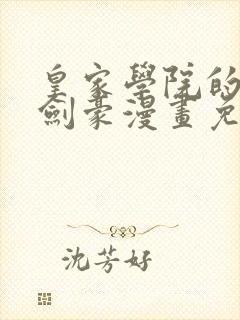 皇家學院的
劍豪漫畫免
沈芳好